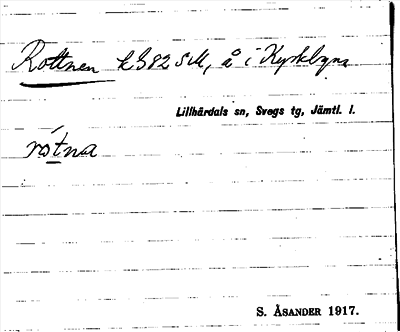 Rottnen kb 82 SM, å i Kyrkbyn
Lillhärdals sn, Svegs tg, Jämtl. l.
rótna
S. ÅSANDER 1917.